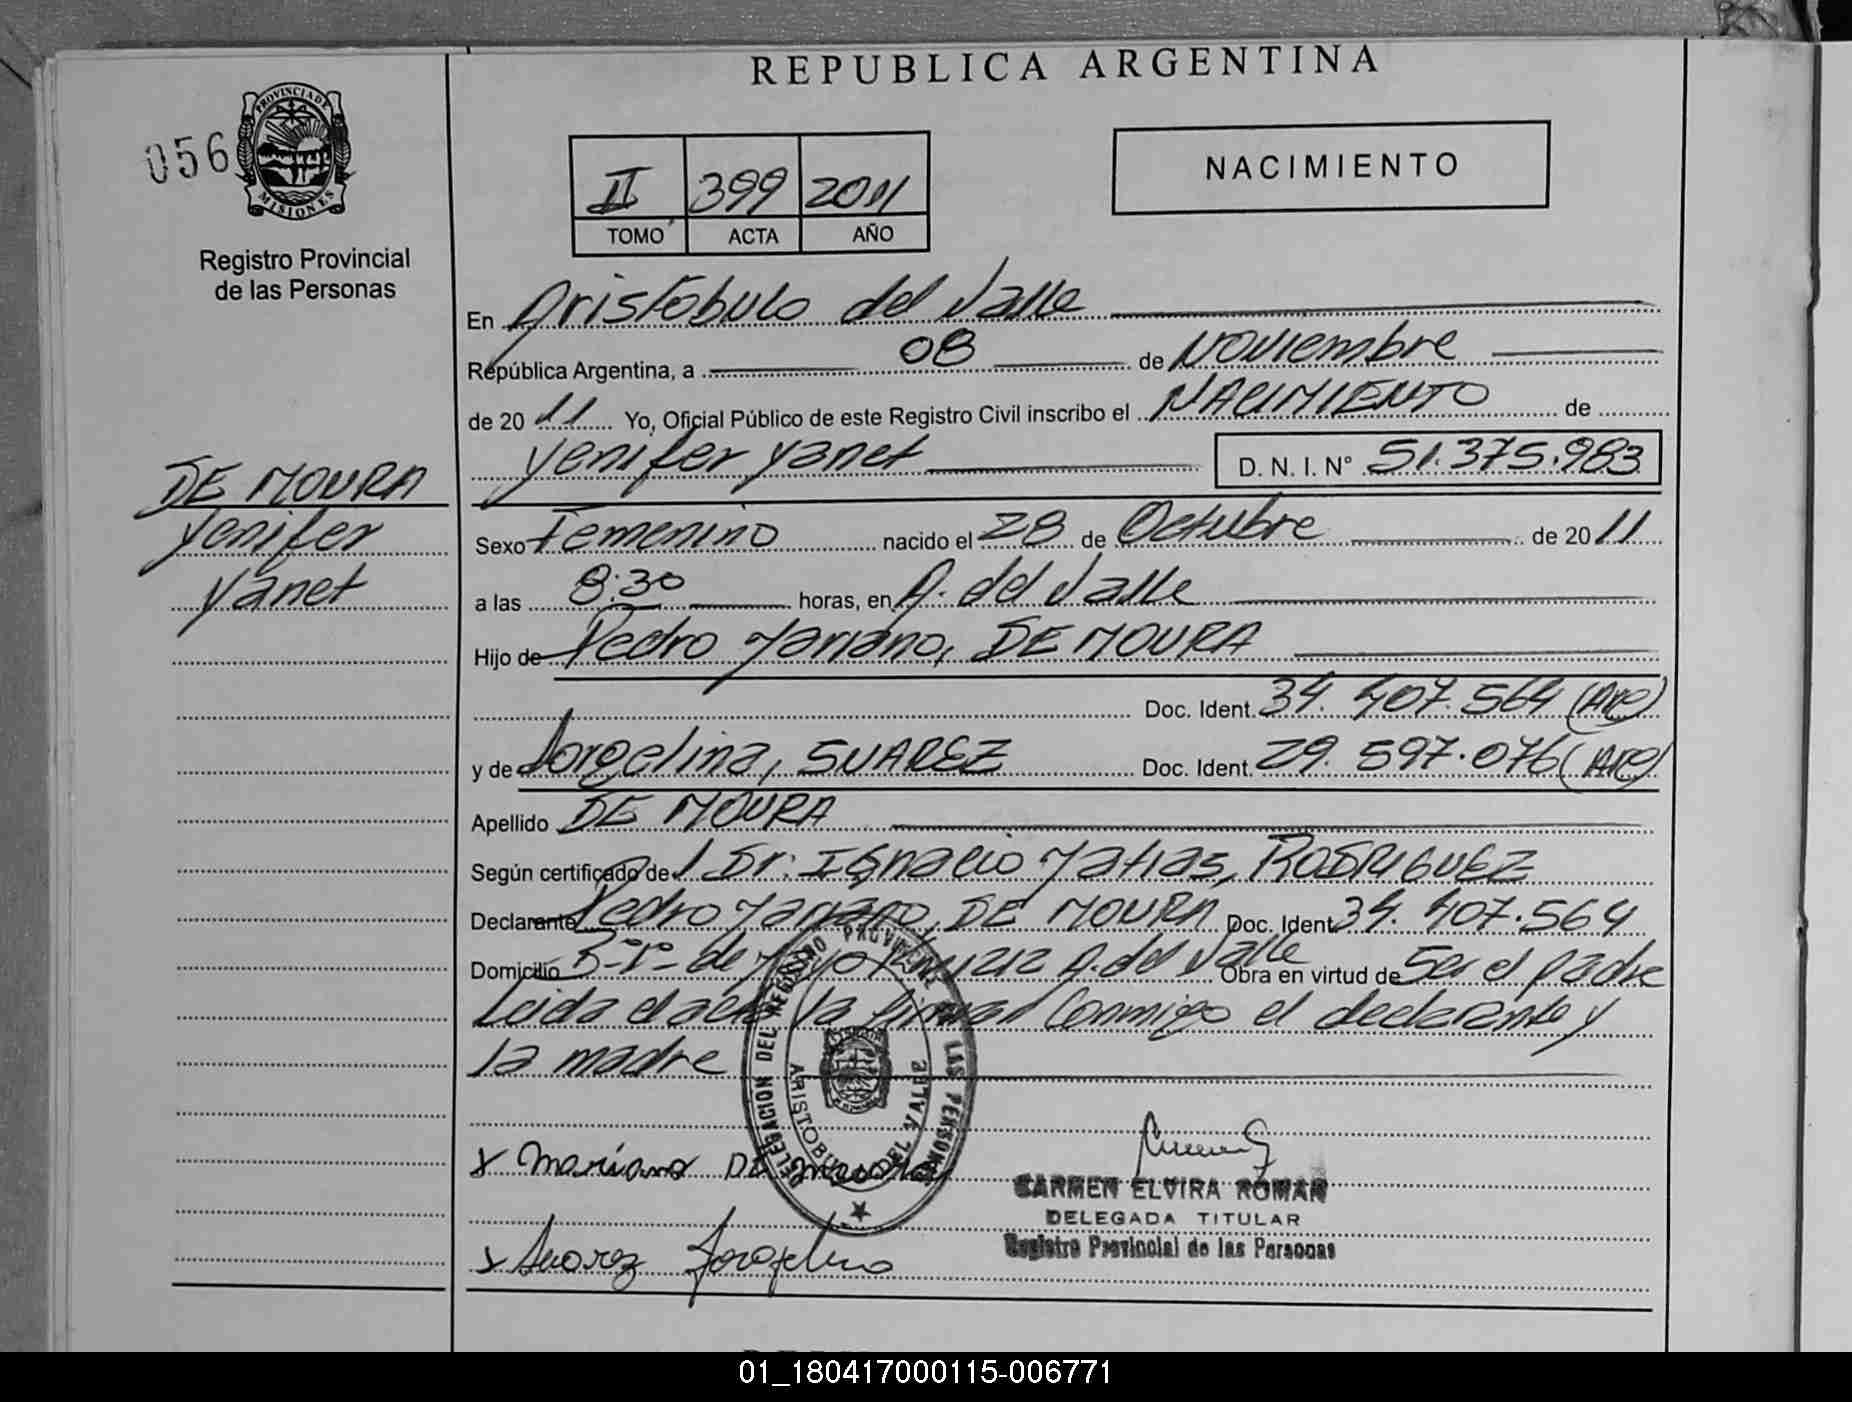 REPUBLICA ARGENTINA
056
PROVINCIA DE MISIONES
Registro Provincial
de las Personas
II 399 2011
TOMO ACTA AÑO
NACIMIENTO
En Aristóbulo del Valle
República Argentina, a 08 de Noviembre
de 20 11 Yo, Oficial Público de este Registro Civil inscribo el NACIMIENTO de
Yenifer Yanet D. N. I. N° 51.375.983
DE MOURA
Yenifer
Yanet
Sexo Femenino nacido el 28 de Octubre de 20 11
a las 8:30 horas, en A. del Valle
Hijo de Pedro Mariano, DE MOURA
Doc. Ident. 34.407.564 (Arg)
y de Jorgelina, SUAREZ Doc. Ident. 29.597.076 (Arg)
Apellido DE MOURA
Según certificado de l Dr. Ignacio Matias, RODRIGUEZ
Declarante Pedro Mariano, DE MOURA Doc. Ident. 34.407.564
Domicilio B°-1°- de Mayo 1212 A. del Valle Obra en virtud de Ser el padre
Leida el acta la firman Conmigo el declarante y
la madre
DELEGACION DEL REGISTRO PROVINCIAL DE LAS PERSONAS
ARISTOBULO DEL VALLE
x Mariano De Moura
CARMEN ELVIRA ROMAN
DELEGADA TITULAR
Registro Provincial de las Personas
x Suarez Jorgelina
01_180417000115-006771